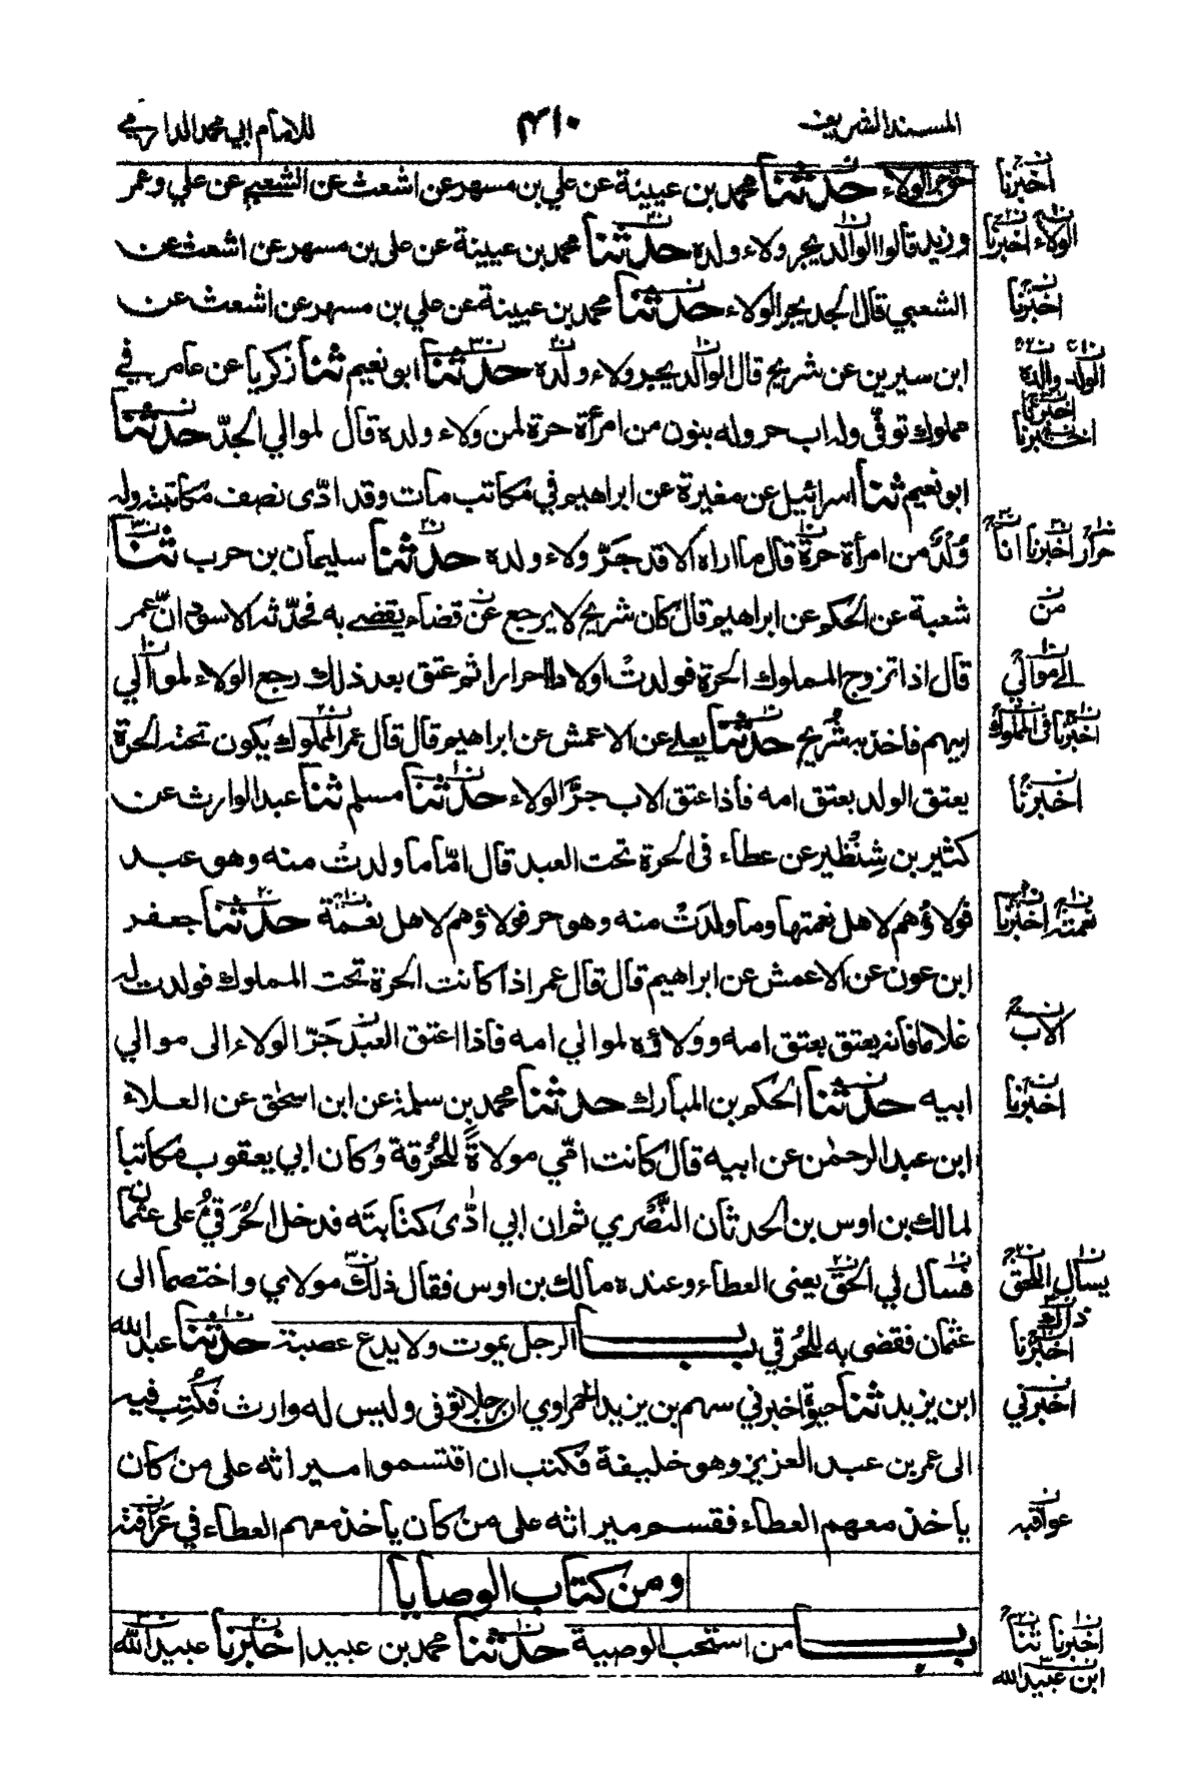 المسند الشريف
٤١٠
للامام ابي محمد الدارمي
جر الولاء حدثنا محمد بن عيينة عن علي بن مسهر عن اشعث عن الشعبي عن علي وعمر
وزيد قالوا الوالد يجر ولاء ولده حدثنا محمد بن عيينة عن علي بن مسهر عن اشعث عن
الشعبي قال الجد يجر الولاء حدثنا محمد بن عيينة عن علي بن مسهر عن اشعث عن
ابن سيرين عن شريح قال الوالد يجر ولاء ولده حدثنا ابو نعيم ثنا زكريا عن عامر في
مملوك توفى وله اب حر وله بنون من امرأة حرة لمن ولاء ولده قال لموالي الجدّ حدثنا
ابو نعيم ثنا اسرائيل عن مغيرة عن ابراهيم في مكاتب مات وقد ادّى نصف مكاتبته وله
وُلْدٌ من امرأة حرة قال ما اراه الا قد جَرّ ولاء ولده حدثنا سليمان بن حرب ثنا
شعبة عن الحكم عن ابراهيم قال كان شريح لا يرجع عن قضاء يقضي به فحدّثه الاسود انّ عمر
قال اذا تزوج المملوك الحرة فولدتْ اولادا احرارا ثم عتق بعد ذلك رجع الولاء لموالي
ابيهم فاخذ به شُرَيح حدثنا يعلى عن الاعمش عن ابراهيم قال قال عمر المملوك يكون تحته الحرة
يعتق الولد بعتق امه فاذا عتق الاب جرّ الولاء حدثنا مسلم ثنا عبد الوارث عن
كثير بن شِنْظير عن عطاء فى الحرة تحت العبد قال امّا ما ولدتْ منه وهو عبد
فولاؤهم لاهل نعمتها وما ولدَتْ منه وهو حر فولاؤهم لاهل نعمة حدثنا جعفر
ابن عون عن الاعمش عن ابراهيم قال قال عمر اذا كانت الحرة تحت المملوك فولدت له
غلاما فانه يعتق بعتق امه وولاؤه لموالي امه فاذا اعتق العبد جَرّ الولاء الى موالي
ابيه حدثنا الحكم بن المبارك حدثنا محمد بن سلمة عن ابن اسحٰق عن العلاء
ابن عبد الرحمٰن عن ابيه قال كانت امّي مولاةً للحُرَقة وكان ابي يعقوب مكاتبا
لمالك بن اوس بن الحدثان النَّصْري ثم ان ابي ادّى كتابتَه فدخل الحُرَقيُّ على عثمان
فسأل لي الحقّ يعنى العطاء وعنده مالك بن اوس فقال ذلك مولاي واختصما الى
عثمان فقضى به للحُرقي باب الرجل يموت ولا يدع عصبة حدثنا عبد الله
ابن يزيد ثنا حيوة اخبرني سهم بن يزيد الحمراوي ان رجلا توفى وليس له وارث فكُتِب فيه
الى عمر بن عبد العزيز وهو خليفة فكتب ان اقتسموا ميراثه على من كان
ياخذ معهم العطاء فقسم ميراثه على من كان ياخذ معهم العطاء في عَرافته
ومن كتاب الوصايا
باب من استحب الوصية حدثنا محمد بن عبيد اخبرنا عبيد الله
اخبرنا
الولاء اخبرنا
اخبرنا
الولد والده
اخبرنا
اخبرنا
احرار اخبرنا انا
من
الى موالي
اخبرنا فى المملوك
اخبرنا
نعمته اخبرنا
الاب
اخبرنا
يسأل اللحق
ذاك
اخبرنا
اخبرني
عواقبه
اخبرنا ثنا
ابن عبيد الله